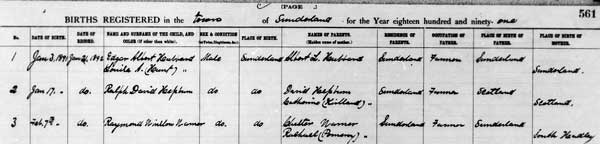 [PAGE ]
561
BIRTHS REGISTERED in the town of Sunderland for the Year eighteen hundred and ninety-one
No. DATE OF BIRTH. DATE OF RECORD. NAME AND SURNAME OF THE CHILD, AND COLOR (if other than white). SEX & CONDITION PLACE OF BIRTH. NAMES OF PARENTS. (Maiden name of mother.) RESIDENCE OF PARENTS. OCCUPATION OF FATHER. PLACE OF BIRTH OF FATHER. PLACE OF BIRTH OF MOTHER.
1 Jan 3, 1891 Edgar Albert Hubbard Male Sunderland Albert L. Hubbard Sunderland Farmer Sunderland
A. (Hunt) " Sunderland.
2 Jan 17. " do. Ralph David Hepburn do do David Hepburn Sunderland Farmer Scotland
Catherine (Kirkland) " Scotland.
3 Feb. 7th " do. Raymond Winslow Warner do. do Chester Warner Sunderland Farmer Sunderland
Rachael (Pomeroy) " South Hadley